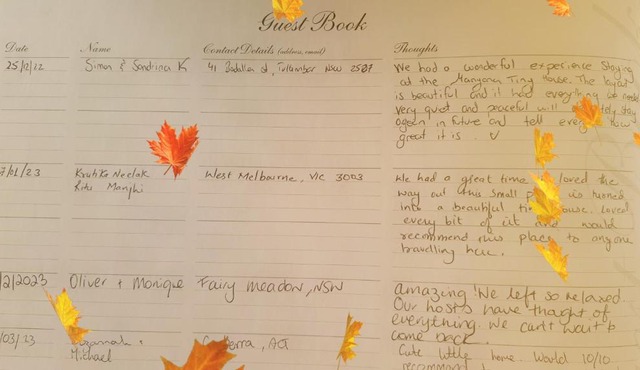 Guest Book
Date Name Contact Details (address, email) Thoughts
25/12/22 Simon & Sandrina K
We had a wonderful experience staying
at the Manyana Tiny House. The layout
is beautiful and it had everything
very quiet and peaceful will stay
again in future and tell how
great it is
/01/23 Kruthika Neelak West Melbourne, VIC 3003 We had a great time loved the
way out this small is turned
into a beautiful house. Loved
every bit of it and would
recommend this place to anyone
travelling here.
/2/2023 Oliver + Monique Fairy meadow, NSW amazing! We left so relaxed
Our hosts have thought of
everything. We can't wait to
come back
/03/23 Michael , ACT Cute little home. Would 10/10
recommend